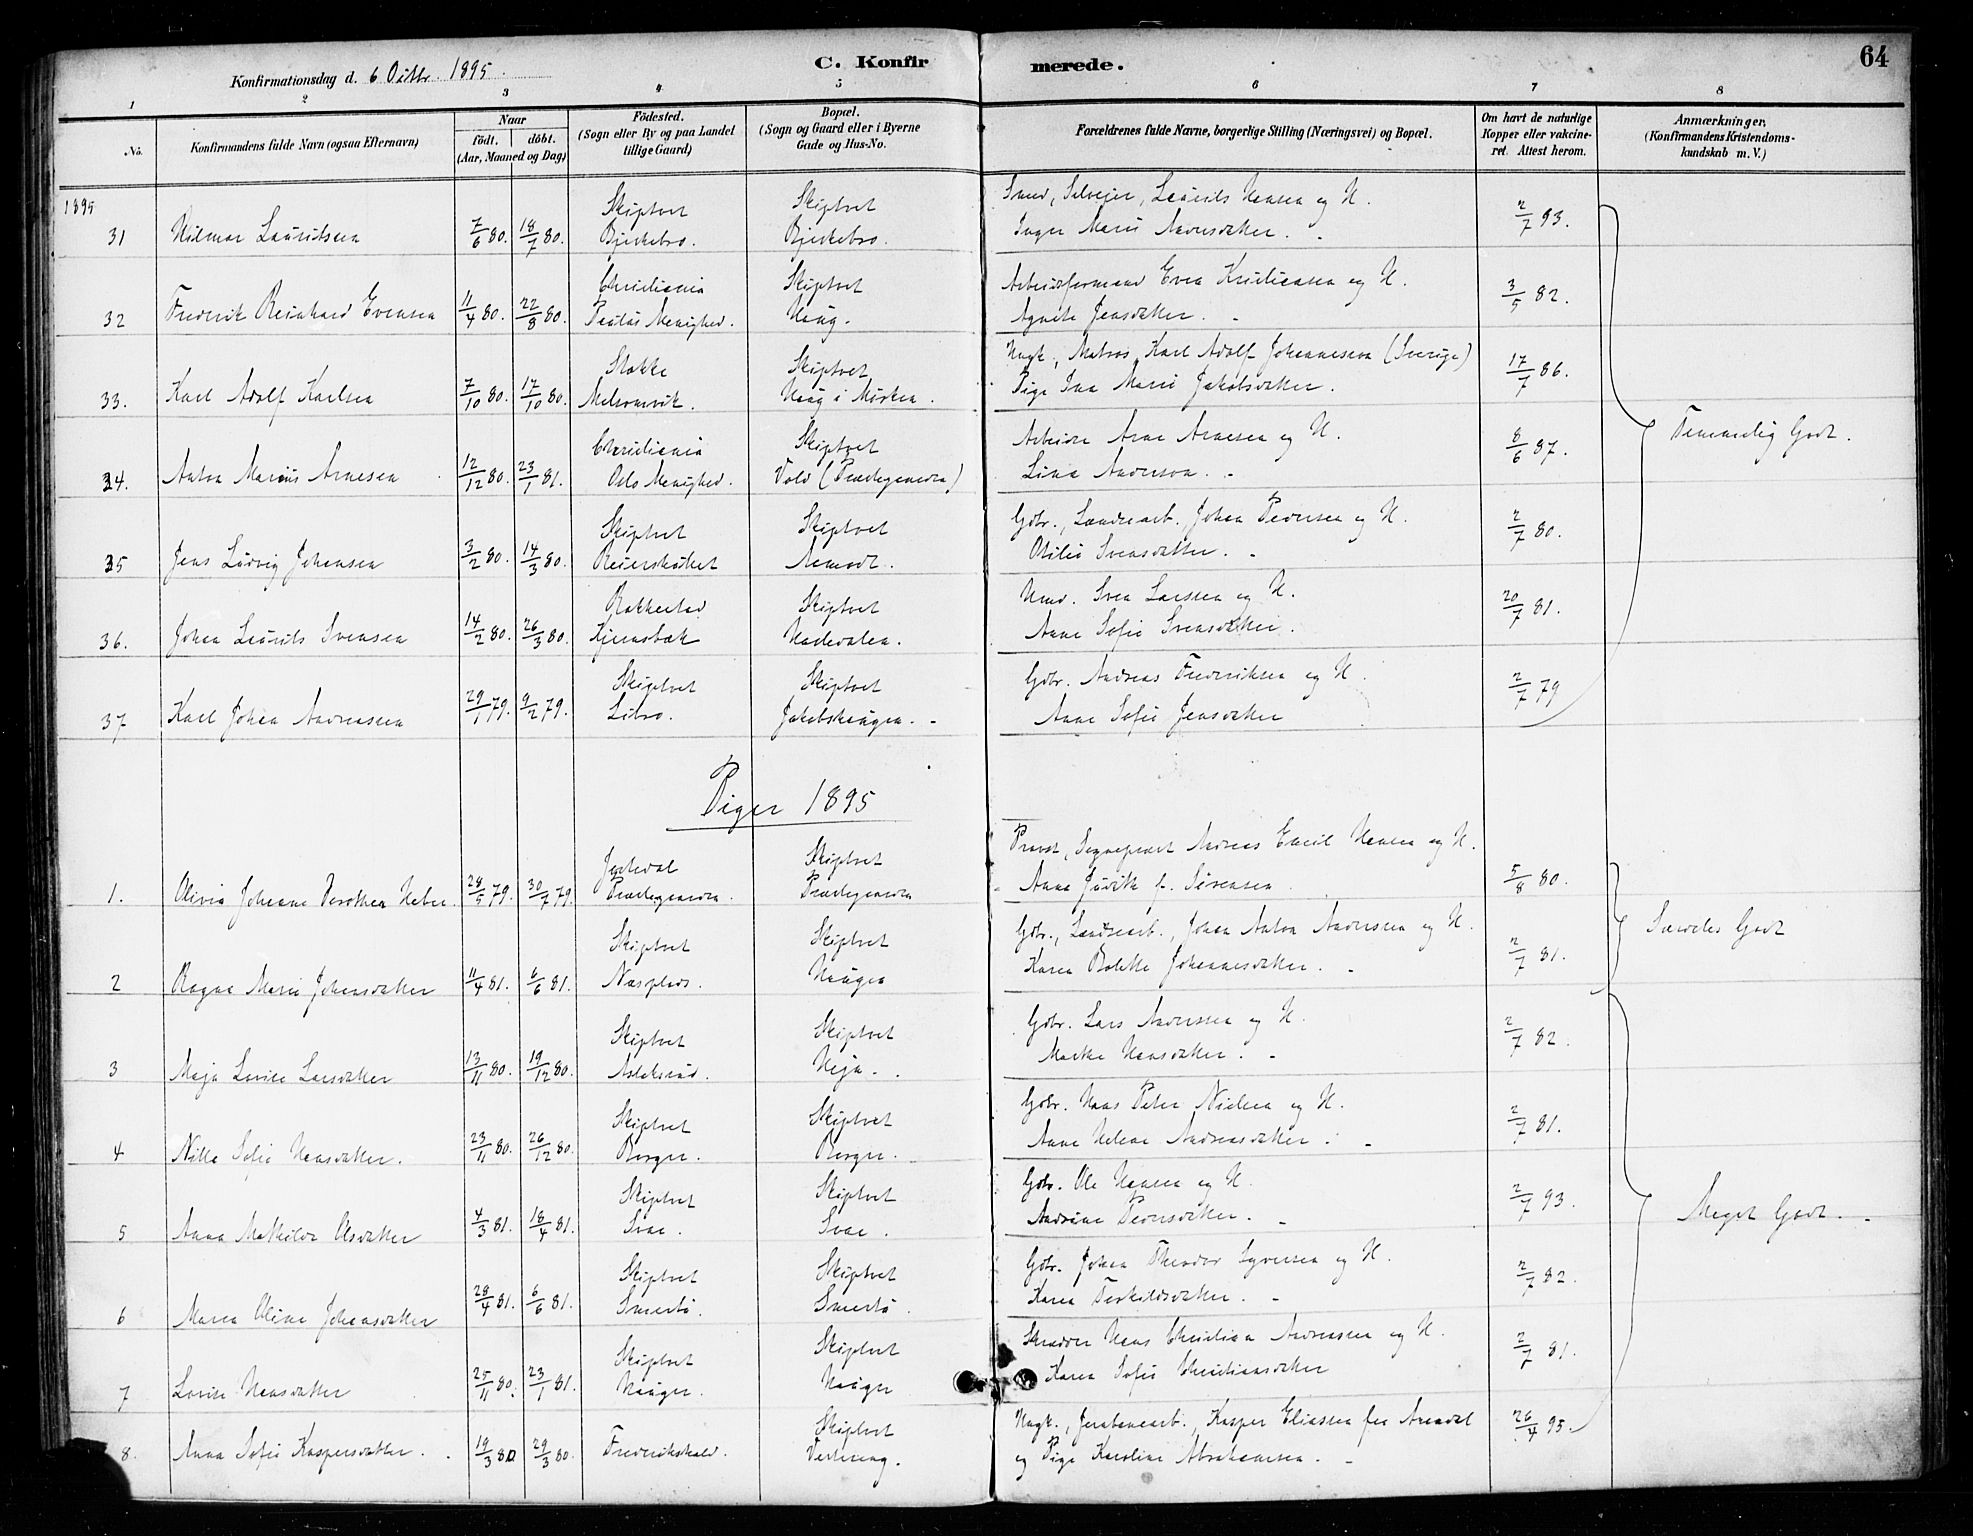 64
Konfirmationsdag d. 6 Octbr. 1895.
C. Konfirmerede.
1 2 3 4 5 6 7 8
No. Konfirmandens fulde Navn (ogsaa Efternavn) Naar födt. döbt. (Aar, Maaned og Dag) Födested. (Sogn eller By og paa Landet tillige Gaard) Bopæl. (Sogn og Gaard eller i Byerne Gade og Hus-No. Forældrenes fulde Navne, borgerlige Stilling (Næringsvei) og Bopæl. Om havt de naturlige Kopper eller vakcineret. Attest herom. Anmærkninger. (Konfirmandens Kristendomskundskab m. V.)
1895
Skiptvet Skiptvet Smed, Selveier, Laurits Hansen og H.
31 Hilmar Lauritsen 7/6 80. 18/7 80. Bjerkebro. Bjerkebro. Inger Marie 2/7 93.
Christiania Skiptvet Arbeidsformand Even Kristiansen og H.
32 Fredrik Reinhard Evensen 11/4 80. 22/8 80. Paulus Menighed. Haug. Agnete Jensdatter. 3/5 82.
Stokke Skiptvet Ungk., Matros Karl Adolf Johannesen (Sverige)
33. Karl Adolf Karlsen 7/10 80. 17/10 80. Melsomvik. Haug i Morken. Pige Ina Marie Jakobsdatter. 17/7 86.
Christiania Skiptvet Arbeider Arne Arnesen og H.
34. Anton Marius Arnesen 12/12 80. 23/1 81. Oslo Menighed. Vold (Prestegaarden) Lina Anderson. 8/6 87.
Temmelig Godt.
Skiptvet Skiptvet Gdbr., Landsearb. Johan Pedersen og H.
35 Jens Ludvig Johansen 3/2 80. 14/3 80. Otilie Svensdatter. 2/7 80.
Rakkestad Skiptvet Hmd. Sven Larsen og H.
36. Johan Laurits Svensen 14/2 80. 26/3 80. Anne Sofie Svensdatter. 20/7 81.
Skiptvet Skiptvet Gdbr. Andreas Fredriksen og H.
37 Karl Johan Andreassen 29/1 79. 9/2 79. Jakobshaugen. Anne Sofie Jensdatter 2/7 79
Piger 1895
Jostedal Skiptvet Provst, Sogneprest Andreas Emil Hansen og H.
1. Olivia Johanne Dorothea 28/5 79. 30/7 79. Prestegaarden. Prestegaarden Anna f. Sörensen 5/8 80.
Skiptvet Skiptvet Gdbr., Landsearb., Johan Anton Andersen og H.
Særdeles Godt
2 Ragna Marie Johansdatter 11/4 81. 6/6 81. Næsplads. Haugen Karen Bolette Johannesdatter. 2/7 81.
Skiptvet Skiptvet Gdbr. Lars Andersen og H.
3 Maja Lovise Larsdatter 13/11 80. 19/12 80. Aslaksrud. Marthe Hansdatter. 2/7 82.
Skiptvet Skiptvet Gdbr. Hans Peter Nielsen og H.
4 Nille Sofie Hansdatter. 23/11 80. 26/12 80. Berger. Berger. Anne Helene Andreasdatter. 2/7 81.
Skiptvet Skiptvet Gdbr. Ole Hansen og H.
5 Anna Mathilde Olsdatter 4/3 81. 18/4 81. Svae. Svae. Andrine Pedersdatter. 2/7 93.
Meget Godt.
Skiptvet Skiptvet Gdbr. Johan Theodor Syversen og H.
6 Maren Oline Johansdatter 28/4 81. 6/6 81. Smertö. Smertö. Karen Terkildsdatter. 2/7 82.
Skiptvet Skiptvet Skrædder Hans Christian Andreassen og H.
7 Lovise Hansdatter 25/11 80. 23/1 81. Hauger. Hauger Karen Sofie Christiansdatter 2/7 81.
Skiptvet Ungk., Jernbanearb., Kasper Eliassen fra Arendal
8. Anna Sofie Kaspersdatter. 19/3 80 29/3 80. Fredrikshald. Vestereng. og Pige Karoline Abrahamsen. 26/4 95.